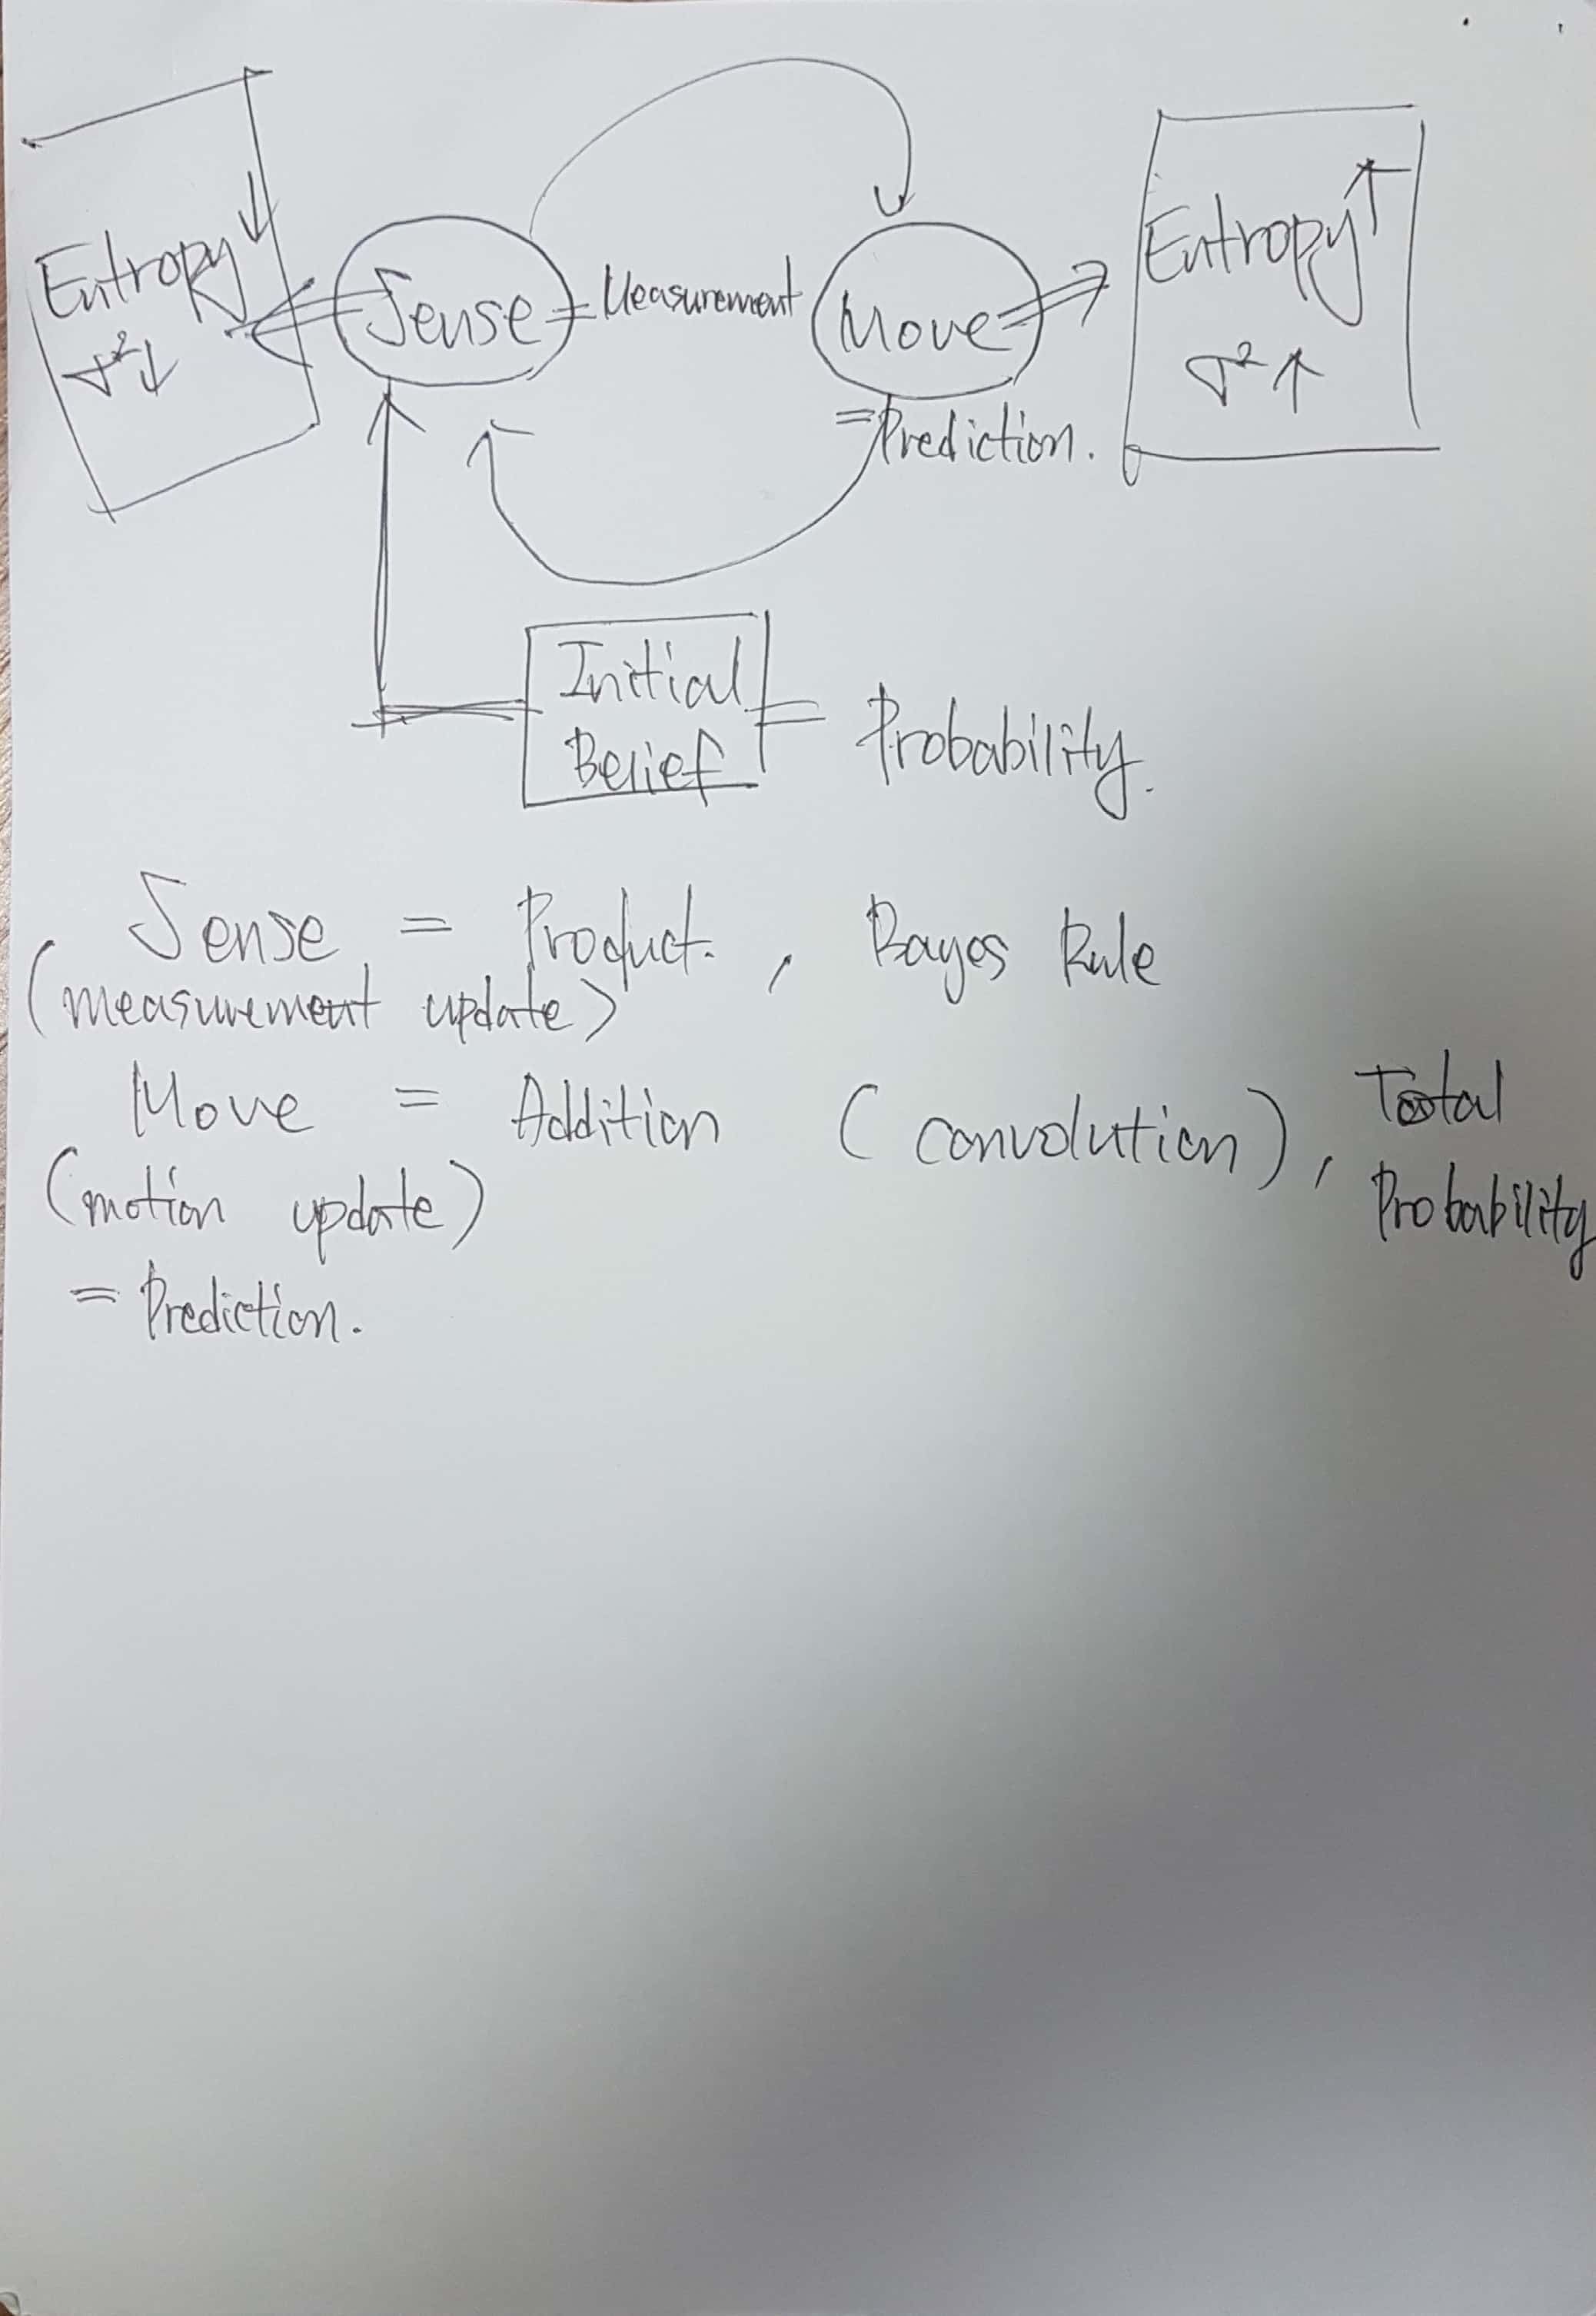 Entropy ↓
σ² ↓
Sense = Measurement
Move
= Prediction.
Entropy ↑
σ² ↑
Initial
Belief
= Probability.
Sense = Product. , Bayes Rule
(measurement update)
Move = Addition (convolution), Total
Probability
(motion update)
= Prediction.